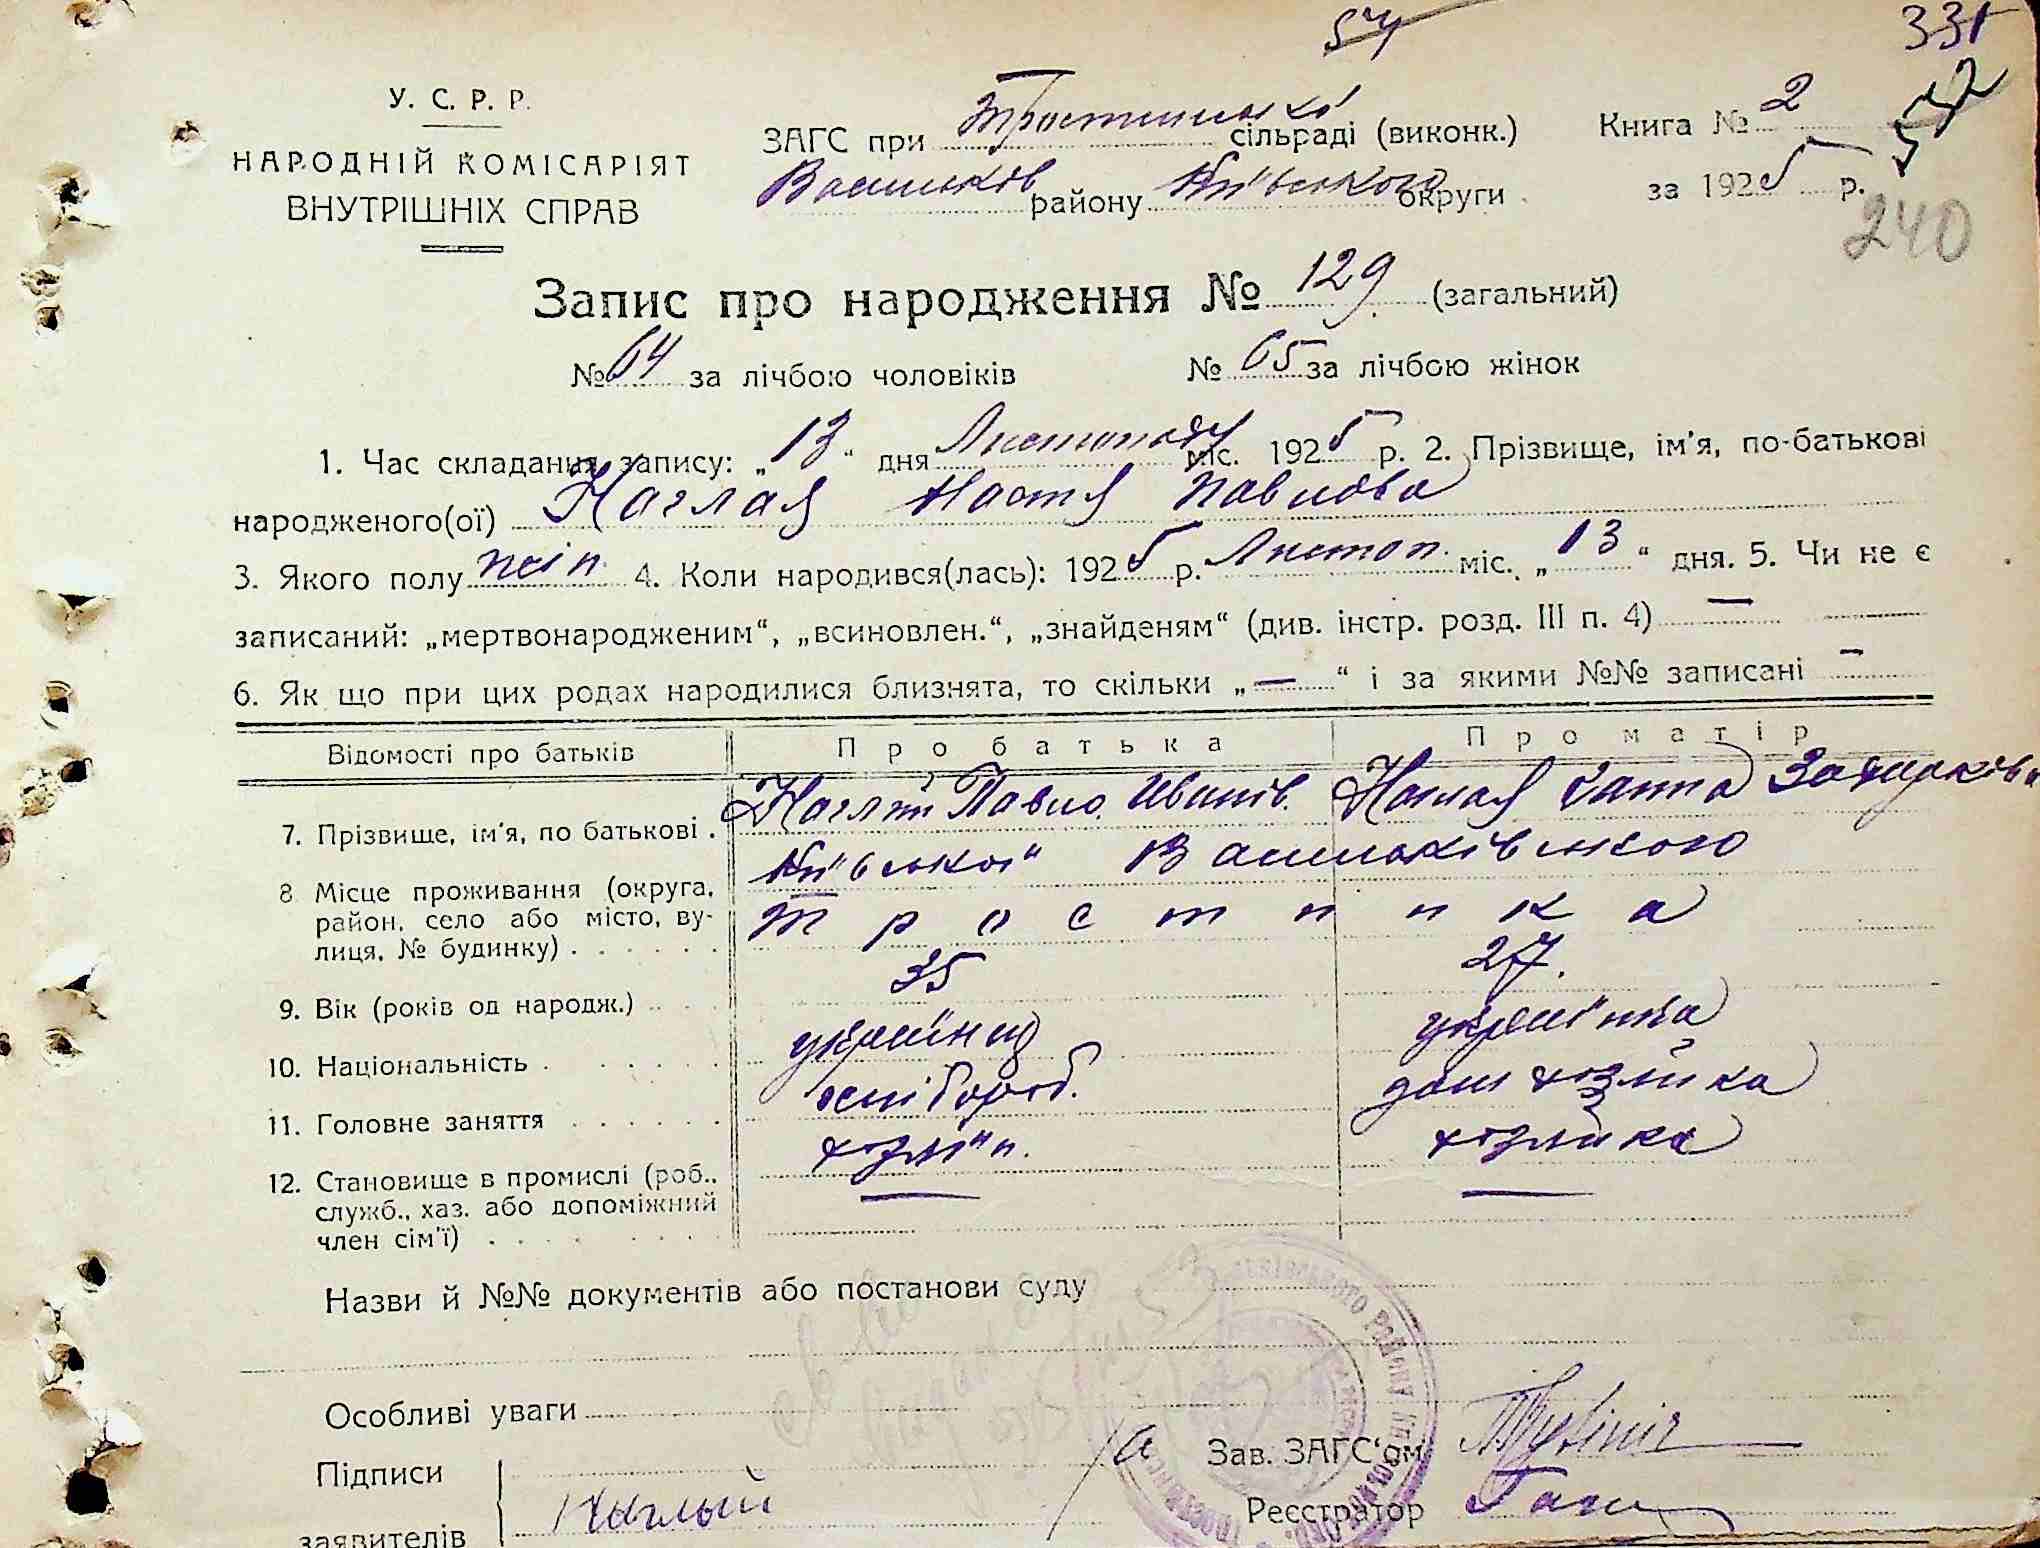 54
331
532
240
У. С. Р. Р.
НАРОДНІЙ КОМІСАРІЯТ
ВНУТРІШНІХ СПРАВ
ЗАГС при Тростинські сільраді (виконк.)
Васильків району Київського округи
Книга № 2
за 1925 р.
Запис про народження № 129 (загальний)
№ 64 за лічбою чоловіків № 65 за лічбою жінок
1. Час складання запису: „13“ дня Листопаду міс. 1925 р. 2. Прізвище, ім'я, по-батькові
народженого(ої) Наглая Настя Павлова
3. Якого полу жін. 4. Коли народився(лась): 1925 р. Листоп. міс. „13“ дня. 5. Чи не є
записаний: „мертвонародженим“, „всиновлен.“, „знайденям“ (див. інстр. розд. III п. 4) —
6. Як що при цих родах народилися близнята, то скільки „—“ і за якими №№ записані —
Відомості про батьків Про батька Про матір
7. Прізвище, ім'я, по батькові . Наглий Павло Иванів. Наглая Ганна Захарківа
8. Місце проживання (округа, Київської Васильківського
район, село або місто, ву-
лиця, № будинку) . . . . . . Тростинка
9. Вік (років од народж.) . . 35 27.
10. Національність . українец українка
11. Головне заняття . . . . . . хлібороб. дом хозяйка
12. Становище в промислі (роб., хозяїн. хозяйка
служб., хаз. або допоміжний
член сім'ї) . . . — —
Назви й №№ документів або постанови суду
Особливі уваги
Підписи
заявителів
Наглый
Зав. ЗАГС'ом
Реєстратор